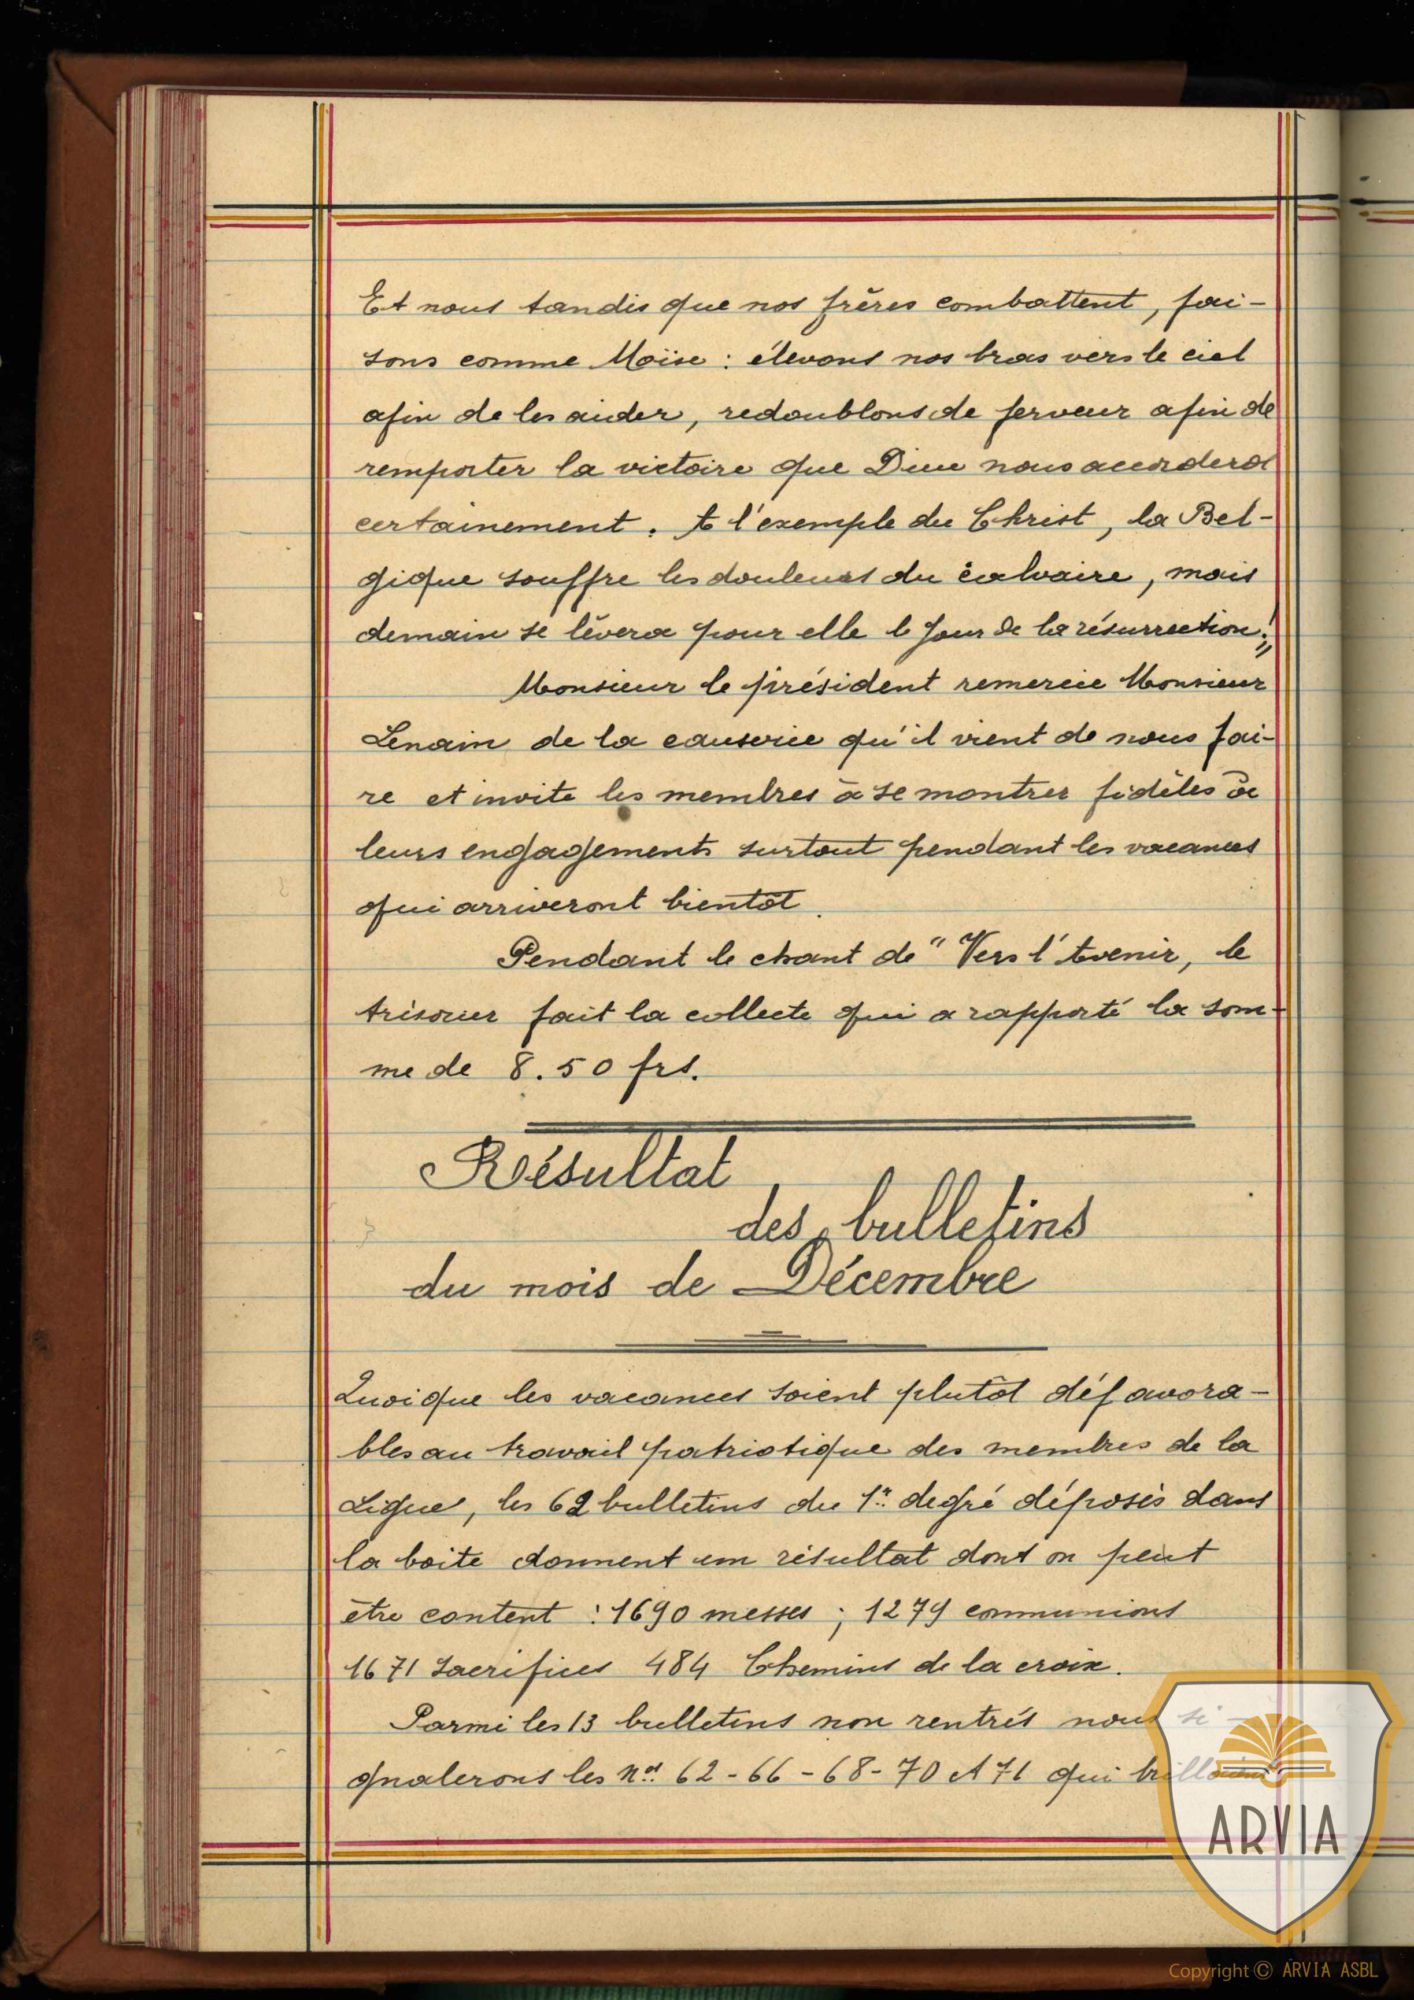 Et nous tandis que nos frères combattent, fai-
sons comme Moïse : élevons nos bras vers le ciel
afin de les aider, redoublons de ferveur afin de
remporter la victoire que Dieu nous accordera
certainement. A l'exemple du Christ, la Bel-
gique souffre les douleurs du calvaire, mais
demain se lèvera pour elle le jour de la résurrection!„
Monsieur le président remercie Monsieur
Lenain de la causerie qu'il vient de nous fai-
re et invite les membres à se montrer fidèles à
leurs engagements surtout pendant les vacances
qui arriveront bientôt.
Pendant le chant de "Vers l'Avenir, le
trésorier fait la collecte qui a rapporté la som-
me de 8.50 frs.
Résultat
des bulletins
du mois de Décembre
Quoique les vacances soient plutôt défavora-
bles au travail patriotique des membres de la
Ligue, les 62 bulletins du 1er degré déposés dans
la boite donnent um résultat dont on peut
être content : 1690 messes ; 1279 communions
1671 sacrifices 484 Chemins de la croix.
Parmi les 13 bulletins non rentrés nous si-
gnalerons les Nos 62-66-68-70 et 71 qui brillaient
ARVIA
Copyright © ARVIA ASBL